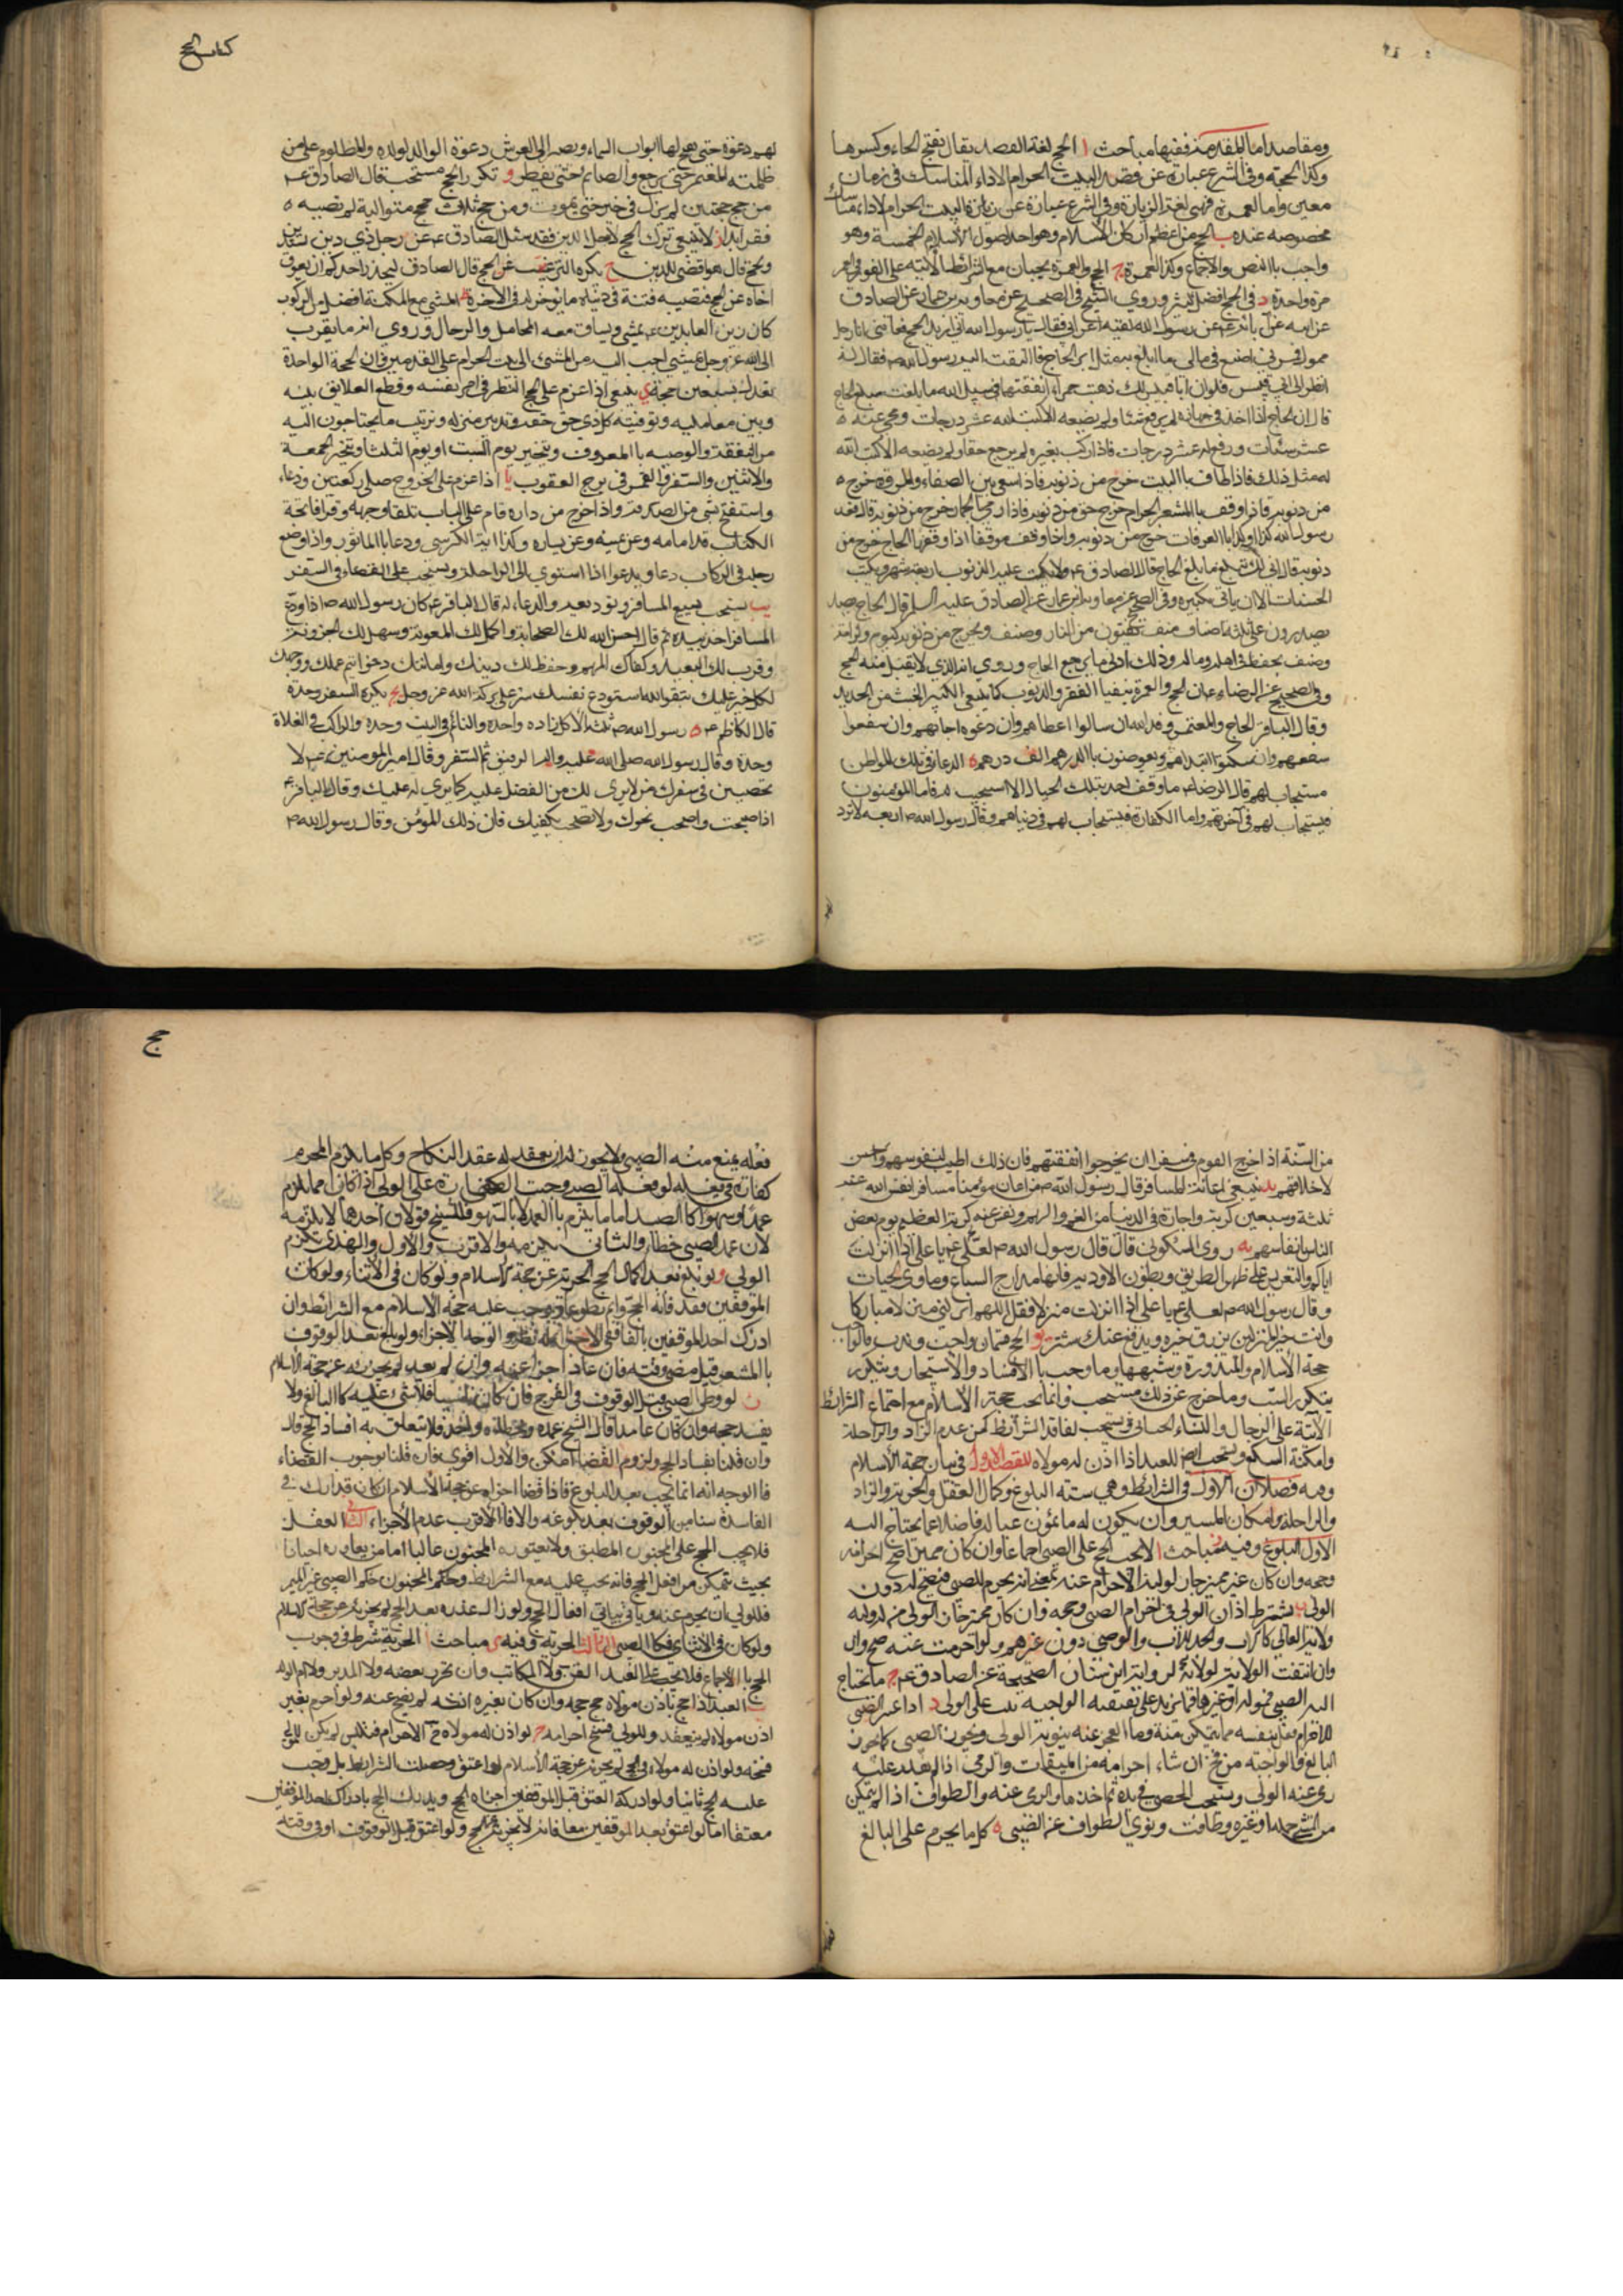 ومقاصد اما المقدمة ففيها مباحث ا الحج لغة القصد يقال بفتح الحاء وكسرها
وكذا الحجة وفي الشرع عبارة عن قصد البيت الحرام لاداء المناسك في زمان
معين واما العمرة فهي لغة الزيارة وفي الشرع عبارة عن زيارة البيت الحرام لاداء مناسك
مخصوصه عنده ب الحج من اعظم اركان الاسلام وهو احد اصول الاسلام الخمسة وهو
واجب بالنص والاجماع وكذا العمرة ج الحج والعمرة يجبان مع الشرائط الاتية على الفور في العمر
مرة واحدة د في الحج فضل كثير وروى الشيخ في الصحيح عن معاوية بن عمار عن الصادق
عن ابيه عن ابائه عم عن رسول الله لقيه اعرابي فقال يا رسول الله اني اريد الحج ففاتني انا رجل
مميل فمرني اصنع في مالي ما ابلغ به مثل اجر الحاج فالتفت اليه رسول الله ص فقال له
انظر الى ابي قبيس فلو ان ابا قبيس لك ذهبة حمراء انفقتها في سبيل الله ما بلغت مبلغ الحاج
قال ان الحاج اذا اخذ في جهازه لم يرفع شيئا ولم يضعه الا كتب الله عشر درجات ومحى عنه
عشر سيئات ورفع له عشر درجات فاذا ركب بعيره لم يرجع حقا ولم يضعه الا كتب الله
له مثل ذلك فاذا طاف بالبيت خرج من ذنوبه فاذا سعى بين الصفا والمروة خرج
من ذنوبه فاذا وقف بالمشعر الحرام خرج من ذنوبه فاذا رمى الجمار خرج من ذنوبه قال فعد
رسول الله كذا وكذا
ذنوبه قال انى لك ان تبلغ ما يبلغ الحاج قال الصادق ع ولا يكتب عليه الذنوب اربعة اشهر ويكتب
الحسنات الا ان ياتي بكبيرة وفي الصحيح عن معاوية بن عمار عن الصادق عليه السلم قال الحاج
يصدرون على ثلثة اصناف صنف يعتقون من النار وصنف يخرج من ذنوبه كيوم ولدته امه
وصنف يحفظ في اهله وماله وذلك ادنى ما يرجع الحاج وروي انه الذي لا يقبل منه الحج
وفي الصحيح عن الرضا ع ان الحج والعمرة ينفيان الفقر والذنوب كما ينفي الكير الخبث من الحديد
وقال الباقر الحاج والمعتمر وفد الله ان سالوا اعطاهم وان دعوه اجابهم وان شفعوا
شفعهم وان سكتوا ابتداهم ويعوضون بالدرهم الف درهم ه الدعاء في تلك المواطن
مستجاب لهم قال الرضا ع ما وقف احد بتلك الجبال الا استجيب له فاما المؤمنون
فيستجاب لهم في آخرتهم واما الكفار فيستجاب لهم في دنياهم وقال رسول الله ص اربعة لا ترد
كتاب الحج
لهم دعوة حتى يفتح لها ابواب السماء ويصير الى العرش دعوة الوالد لولده والمظلوم على من
ظلمه والمعتمر حتى يرجع والصائم حتى يفطر و تكرر الحج مستحب قال الصادق عم
من حج حجتين لم يزل في خير حتى يموت ومن حج ثلاث حجج متوالية لم يصبه
فقر ابدا ز لا ينبغي ترك الحج لاجل الدين فقد سئل الصادق ع عن رجل ذي دين يستدين
ويحج قال هو اقضى للدين ح يكره الترغيب عن الحج قال الصادق ليحذر احدكم ان يعوق
اخاه عن الحج فتصيبه فتنة في دنياه ما يؤخر له في الاخرة ط المشي مع المكنة افضل من الركوب
كان زين العابدين ع يمشي ويساق معه المحامل والرحال وروي انه ما يقرب
الى الله عز وجل بشيء احب اليه من المشي الى بيته الحرام على القدمين وان الحجة الواحدة
تعدل سبعين حجة ي ينبغي اذا عزم على الحج النظر في امر نفسه وقطع العلايق بينه
وبين معامليه وتوفيته كل ذي حق حقه وتدبير منزله وترتيب ما يحتاجون اليه
من النفقة والوصية بالمعروف ويتخير يوم السبت او يوم الثلثا ويتجنب الجمعة
والاثنين والسفر والقمر في برج العقرب يا اذا عزم على الخروج صلى ركعتين ودعا
واستفتح بشيء من الصدقة واذا خرج من داره قام على الباب تلقاء وجهه وقرا فاتحة
الكتاب قدامه وعن يمينه وعن يساره وكذا اية الكرسي ودعا بالماثور واذا وضع
رجله في الركاب دعا ويدعو اذا استوى الى الراحلة ويستحب على العصاء في السفر
يب يستحب تشييع المسافر وتوديعه والدعاء له قال الباقر ع كان رسول الله ص اذا ودع
المسافر اخذ بيده ثم قال احسن الله لك الصحابة واكمل لك المعونة وسهل لك الحزونة
وقرب لك البعيد وكفاك المهم وحفظ لك دينك وامانتك وخواتيم عملك ووجهك
لكل خير عليك بتقوى الله استودع نفسك سر على بركة الله عز وجل يج يكره السفر وحده
قال الكاظم ع رسول الله ص ثلثة الاكل زاده واحده والنائم في البيت وحده والراكب في الفلاة
وحده وقال رسول الله صلى الله عليه واله الرفيق ثم السفر وقال امير المؤمنين ع لا
تصحبن في سفرك من لا يرى لك من الفضل عليه كما يرى له عليك وقال الباقر ع
اذا صحبت واصحب نحوك ولا تصحب يكفيك فان ذلك للمؤمن وقال رسول الله ص
من السنة اذا خرج القوم في سفر ان يخرجوا نفقتهم فان ذلك اطيب لنفوسهم واحسن
لاخلاقهم يد ينبغي اعانة المسافر قال رسول الله ص من اعان مؤمنا مسافرا نفس الله عنه
ثلثة وسبعين كربة واجاره في الدنيا من الغم والهم ونفس عنه كربه العظيم يوم بعض
الناس بانفاسهم يه روى السكوني قال قال رسول الله ص لعلي ع يا علي اذا نزلت
اياكم والتعريس على ظهر الطريق وبطون الاودية فانها مدارج السباع وماوى الحيات
وقال رسول الله ص لعلي ع يا علي اذا نزلت منزلا فقل اللهم انزلني منزلا مباركا
وانت خير المنزلين ترزق خيره ويدفع عنك شره يو الحج قسمان واجب وندب فالواجب
حجة الاسلام والمنذورة وشبهها وما وجب بالافساد والاستيجار ويتكرر
بتكرر السبب وما خرج عن ذلك مستحب وانما تجب حجة الاسلام مع اجتماع الشرائط
الآتية على الرجال والنساء الخناثى ويستحب لفاقد الشرائط كمن عدم الزاد والراحلة
وامكنه السكع ويستحب ايض للعبد اذا اذن له مولاه المقصد الاول في بيان حجة الاسلام
وفيه فصلان الاول في الشرائط وهي ستة البلوغ وكمال العقل والحرية والزاد
والراحلة وامكان المسير وان يكون له ما يمون عياله فاضلا عما يحتاج اليه
الاول البلوغ وفيه مباحث ا لا يجب الحج على الصبي اجماعا وان كان مميزا صح احرامه
وحجه وان كان غير مميز جاز لوليه الاحرام عنه بمعنى انه يحرم للصبي فيصح له دون
الولي ب يشترط اذن الولي في احرام الصبي وحجه وان كان مميزا فان الولي من له ولاية
ولاية المال كالاب والجد للاب والوصي دون غيرهم ولو احرمت عنه صح وان
وان انتفت الولاية لولاية لرواية ابن سنان الصحيحة عن الصادق عم ج ما يحتاج
اليه الصبي من حمولة او غيرها فما يزيد على نفقته الواجبة يثبت على الولي د اذا عبر الصبي
للاحرام فعل بنفسه ما يتمكن منه وما العجز عنه ينوبه الولي ويجوز الصبي كما يجوز
البالغ والواجبة من فخ ان شاء احرامه من الميقات والرمي اذا لم يقدر عليه
رمى عنه الولي ويستحب الحصى في يده ثم اخذها والرمي عنه والطواف اذا لم يتمكن
من المشي حمله او غيره وطاف وينوي الطواف عن الصبي ه كل ما يحرم على البالغ
حج
فعله يمنع منه الصبي ولا يجوز له ان يعقد له عقد النكاح وكل ما يلزم المحرم
كفارة في فعله لو فعله الصبي وجبت الكفارة على الولي اذا كان مما يلزم
عمدا وسهوا كالصيد اما ما يلزم بالعمد لا بالسهو فللشيخ قولان احدهما لا يلزمه
لان عمد الصبي خطأ والثاني يلزمه والاقرب الاول والهدي يلزم
الولي و لو بلغ بعد اكمال الحج لم يجزيه عن حجة الاسلام ولو كان في الاثناء ولو كان
الموقفين فقد فاته الحج واتم تطوعا ويجب عليه حجة الاسلام مع الشرائط وان
ادرك احد الموقفين بالغا ففي الاجزاء نظر الوجه الاجزاء ولو بلغ بعد الوقوف
بالمشعر قبل مضي وقته فان عاد اجزأ عنه وان لم يعد لم يجزئه عن حجة الاسلام
ز لو وطئ الصبي قبل الوقوف في الفرج فان كان ناسيا فلا شيء عليه كالبالغ ولا
يفسد حجه وان كان عامدا قال الشيخ عمده وخطاؤه واحد فلا يتعلق به افساد الحج قال
وان قلنا بفساد الحج ولزوم القضا امكن والاول اقوى فان قلنا بوجوب القضاء
فالوجه انه انما يجب بعد البلوغ فاذا قضا اجزاه عن حجة الاسلام ان كان قد ادرك في
الفاسدة شيئا من الوقوف بعد بلوغه والا فالاقرب عدم الاجزاء الثاني العقل
فلا يجب الحج على المجنون المطبق ولا يعتوره المجنون غالبا اما من يعاوده احيانا
بحيث يتمكن من افعل الحج فانه يجب عليه مع الشرائط وحكم المجنون حكم الصبي غير المميز
فللولي ان يحرم عنه وياتي بباقي افعال الحج ولو زال عذره بعد الحج لم يجزئه عن حجة الاسلام
ولو كان في الاثناء فكالصبي الثالث الحرية وفيه مباحث ا الحرية شرط في وجوب
الحج بالاجماع فلا يجب على العبد القن ولا المكاتب وان تحرر بعضه ولا المدبر ولا ام الولد
ب العبد اذا حج باذن مولاه صح حجه وان كان بغيره اذنه لم يصح عنه ولو احرم بغير
اذن مولاه لم ينعقد وللولي فسخ احرامه ج لو اذن له مولاه في الاحرام فتلبس لم يكن للمولى
فسخه ولو اذن له مولاه في الحج لم يجزئه عن حجة الاسلام لو اعتق وحصلت الشرائط بل وجب
عليه الحج ثانيا ولو ادركه العتق قبل الموقفين اجزاه الحج ويدرك الحج بادراك احد الموقفين
معتقا اما لو اعتق بعد الموقفين معا فانه لا يجزئه عن الحج ولو اعتق قبل الوقوف او في وقته